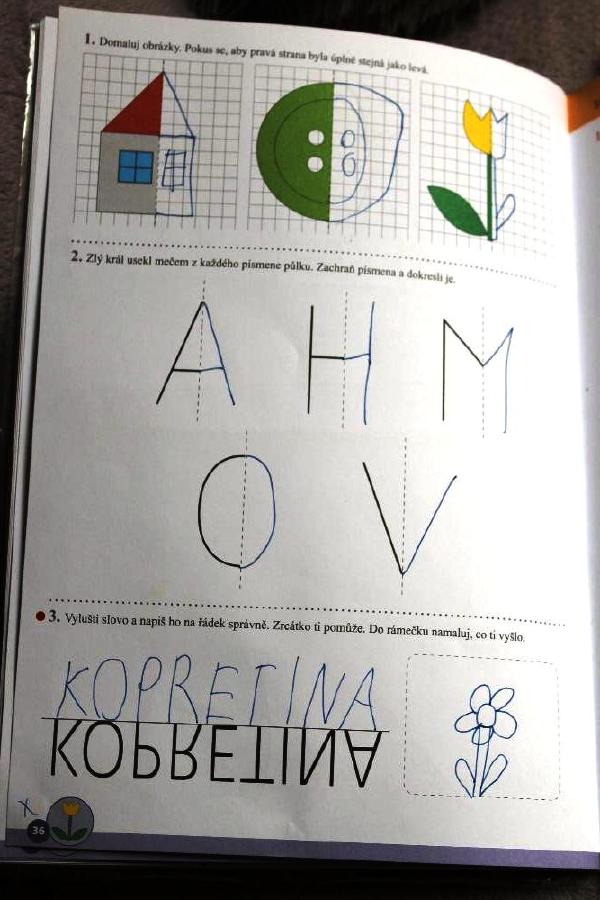 1. Domaluj obrázky. Pokus se, aby pravá strana byla úplně stejná jako levá.
2. Zlý král usekl mečem z každého písmene půlku. Zachraň písmena a dokresli je.
A H M
O V
3. Vylušti slovo a napiš ho na řádek správně. Zrcátko ti pomůže. Do rámečku namaluj, co ti vyšlo.
KOPRETINA
KOPRETINA
X
36